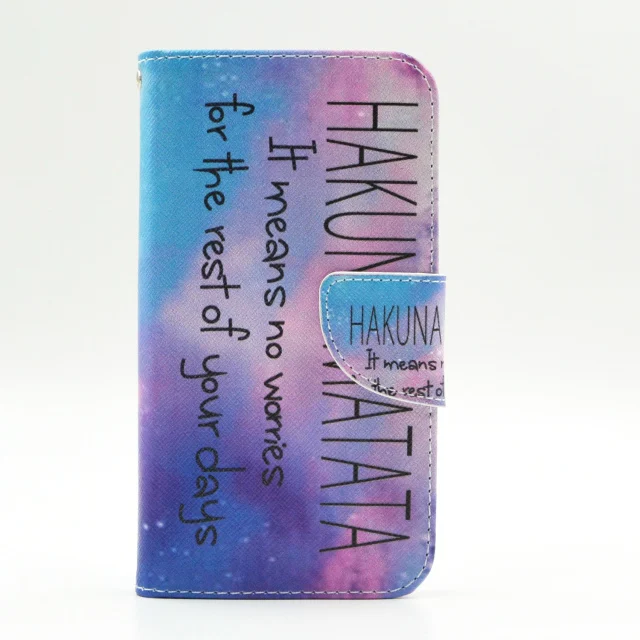 HAKUN MATATA
It means no worries
for the rest of your days
HAKUNA
It means
the rest of